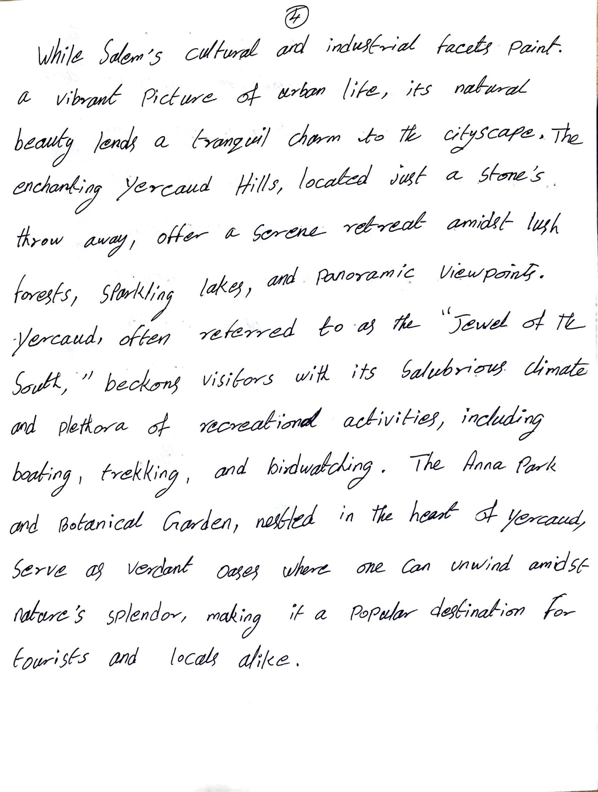 4
While Salem's cultural and industrial facets paint.
a vibrant Picture of urban life, its natural
beauty lends a tranquil charm to the cityscape. The
enchanting Yercaud Hills, located just a stone's.
throw away, offer a serene retreat amidst lush
forests, sparkling lakes, and panoramic viewpoints.
Yercaud, often referred to as the "Jewel of the
South," beckons visitors with its salubrious climate
and plethora of recreational activities, including
boating, trekking, and birdwatching. The Anna Park
and Botanical Garden, nestled in the heart of Yercaud,
serve as verdant oases where one can unwind amidst
nature's splendor, making it a popular destination for
tourists and locals alike.